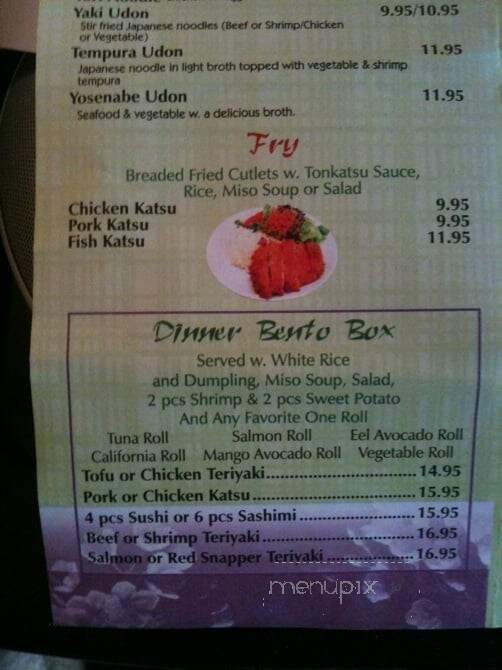 Yaki Udon 9.95/10.95
Stir fried Japanese noodles (Beef or Shrimp/Chicken
or Vegetable)
Tempura Udon 11.95
Japanese noodle in light broth topped with vegetable & shrimp
tempura
Yosenabe Udon 11.95
Seafood & vegetable w. a delicious broth.
Fry
Breaded Fried Cutlets w. Tonkatsu Sauce,
Rice, Miso Soup or Salad
Chicken Katsu 9.95
Pork Katsu 9.95
Fish Katsu 11.95
Dinner Bento Box
Served w. White Rice
and Dumpling, Miso Soup, Salad,
2 pcs Shrimp & 2 pcs Sweet Potato
And Any Favorite One Roll
Tuna Roll Salmon Roll Eel Avocado Roll
California Roll Mango Avocado Roll Vegetable Roll
Tofu or Chicken Teriyaki 14.95
Pork or Chicken Katsu 15.95
4 pcs Sushi or 6 pcs Sashimi 15.95
Beef or Shrimp Teriyaki 16.95
Salmon or Red Snapper Teriyaki 16.95
menupix